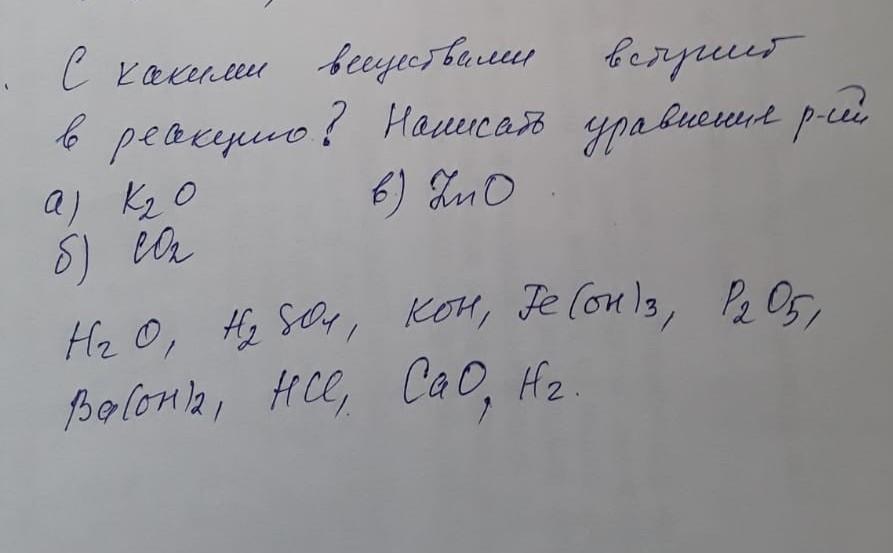 С какими веществами вступит
в реакцию? Написать уравнение р-ий
а) K₂O в) ZnO
б) CO₂
H₂O, H₂SO₄, KOH, Fe(OH)₃, P₂O₅,
Ba(OH)₂, HCl, CaO, H₂.